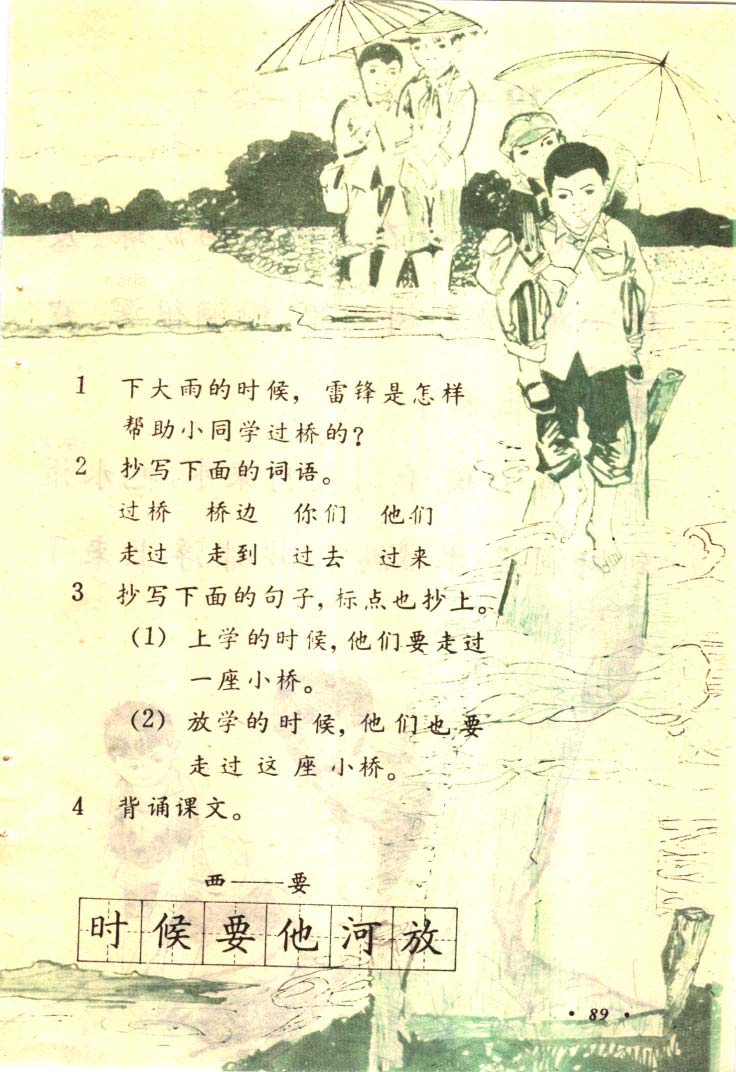 1 下大雨的时候，雷锋是怎样
帮助小同学过桥的？
2 抄写下面的词语。
过桥 桥边 你们 他们
走过 走到 过去 过来
3 抄写下面的句子，标点也抄上。
(1) 上学的时候，他们要走过
一座小桥。
(2) 放学的时候，他们也要
走过这座小桥。
4 背诵课文。
西——要
时候要他河放
·89·